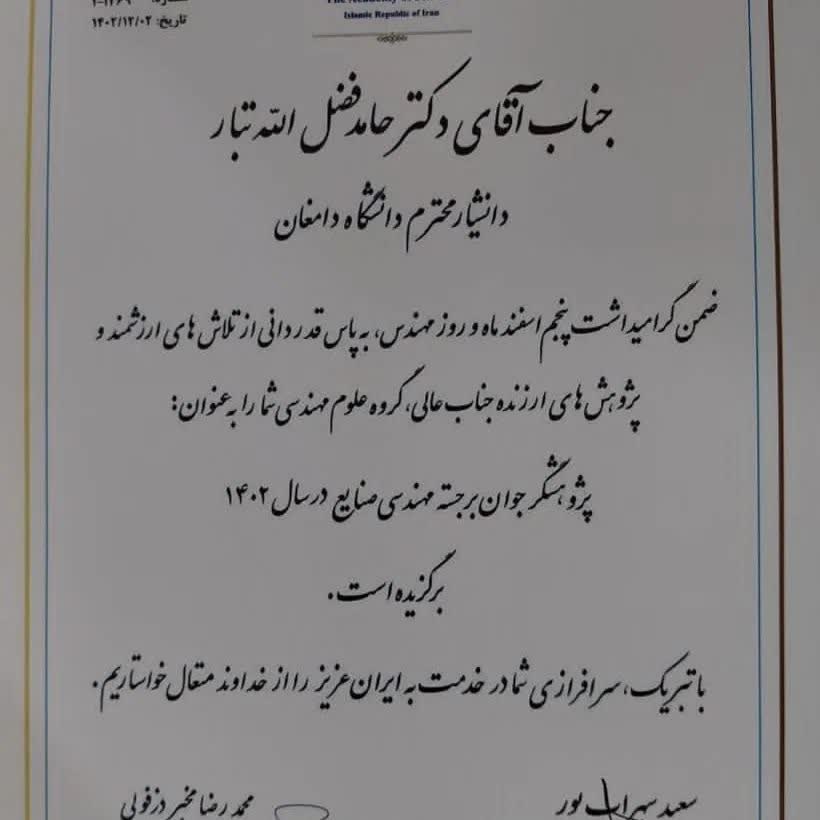 تاریخ: ۱۴۰۲/۱۲/۰۲
Islamic Republic of Iran
جناب آقای دکتر حامد فضل الله تبار
دانشیار محترم دانشگاه دامغان
ضمن گرامیداشت پنجم اسفند ماه و روز مهندس، به پاس قدردانی از تلاش های ارزشمند و
پژوهش های ارزنده جناب عالی، گروه علوم مهندسی شما را به عنوان:
پژوهشگر جوان برجسته مهندسی صنایع در سال ۱۴۰۲
برگزیده است.
با تبریک، سرافرازی شما در خدمت به ایران عزیز را از خداوند متعال خواستاریم.
سعید سهراب پور
محمد رضا مخبر دزفولی